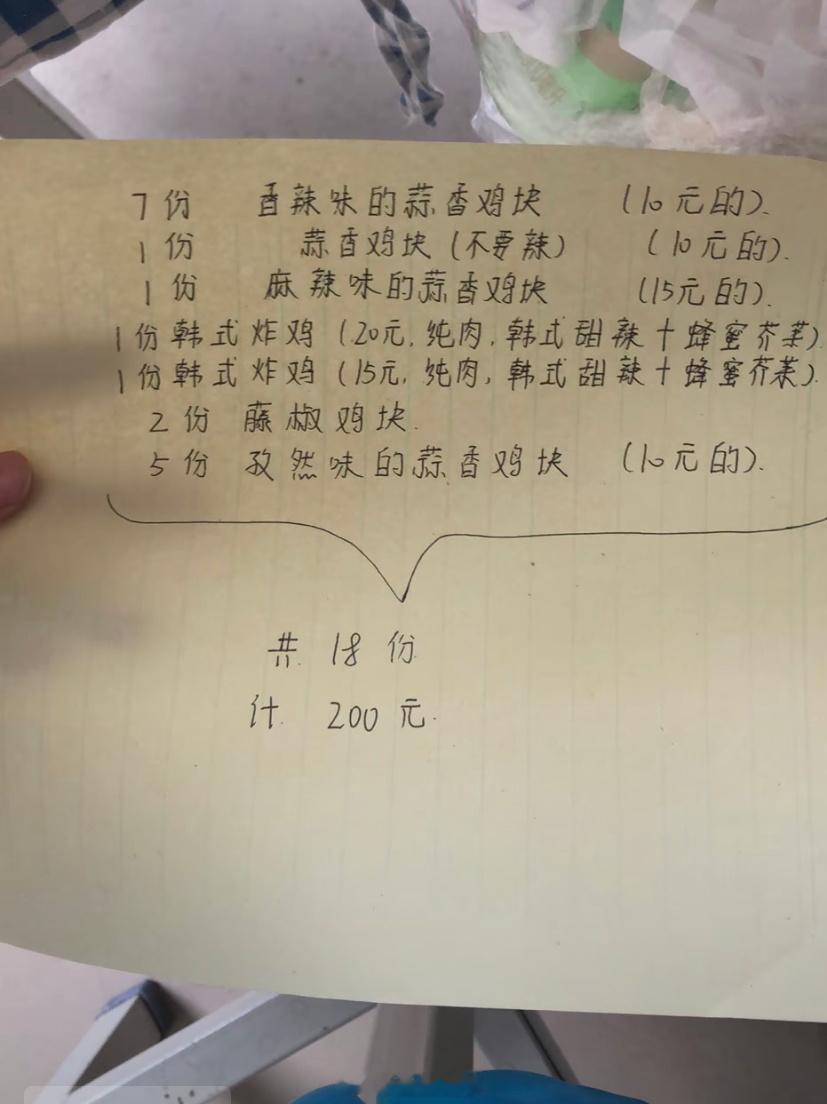 7份 香辣味的蒜香鸡块 (10元的).
1份 蒜香鸡块(不要辣) (10元的).
1份 麻辣味的蒜香鸡块 (15元的).
1份韩式炸鸡(20元,纯肉,韩式甜辣+蜂蜜芥茉).
1份韩式炸鸡(15元,纯肉,韩式甜辣+蜂蜜芥茉).
2份 藤椒鸡块.
5份 孜然味的蒜香鸡块 (10元的).
共 18份
计 200元.